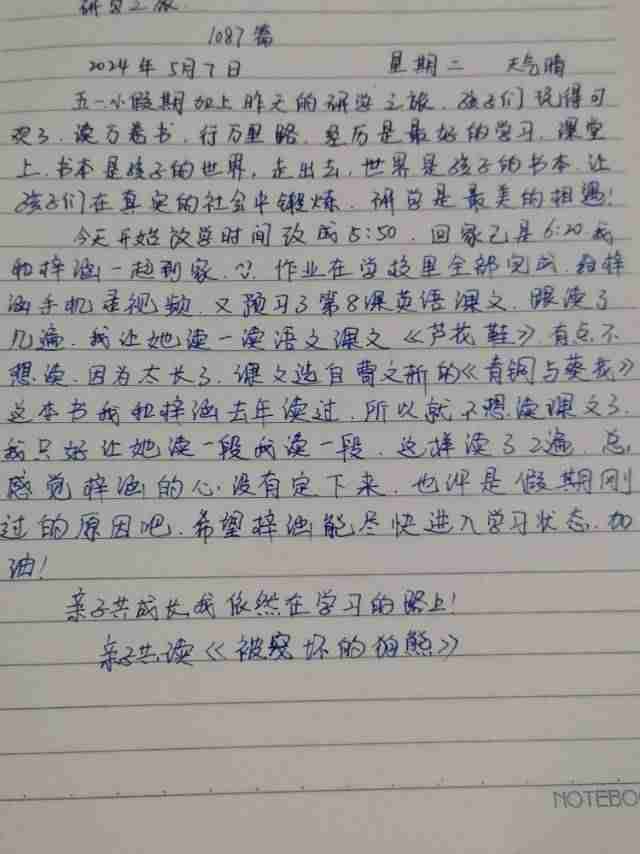 研学之旅.
1087篇
2024年5月7日 星期二 天气晴
五一小假期加上昨天的研学之旅.孩子们玩得可
欢了.读万卷书,行万里路.经历是最好的学习.课堂
上.书本是孩子的世界,走出去,世界是孩子的书本.让
孩子们在真实的社会中锻炼.研学是最美的相遇!
今天开始放学时间改成5:50.回家已是6:20.我
和梓涵一起到家.作业在学校里全部完成.给梓
涵手机看视频.又预习了第8课英语课文.跟读了
几遍.我让她读一读语文课文《芦花鞋》.有点不
想读.因为太长了.课文选自曹文轩的《青铜与葵花》
这本书我和梓涵去年读过.所以就不想读课文了.
我只好让她读一段我读一段.这样读了2遍.总
感觉梓涵的心没有定下来.也许是假期刚
过的原因吧.希望梓涵能尽快进入学习状态.加
油!
亲子共成长,我依然在学习的路上!
亲子共读《被宠坏的狗熊》
NOTEBO